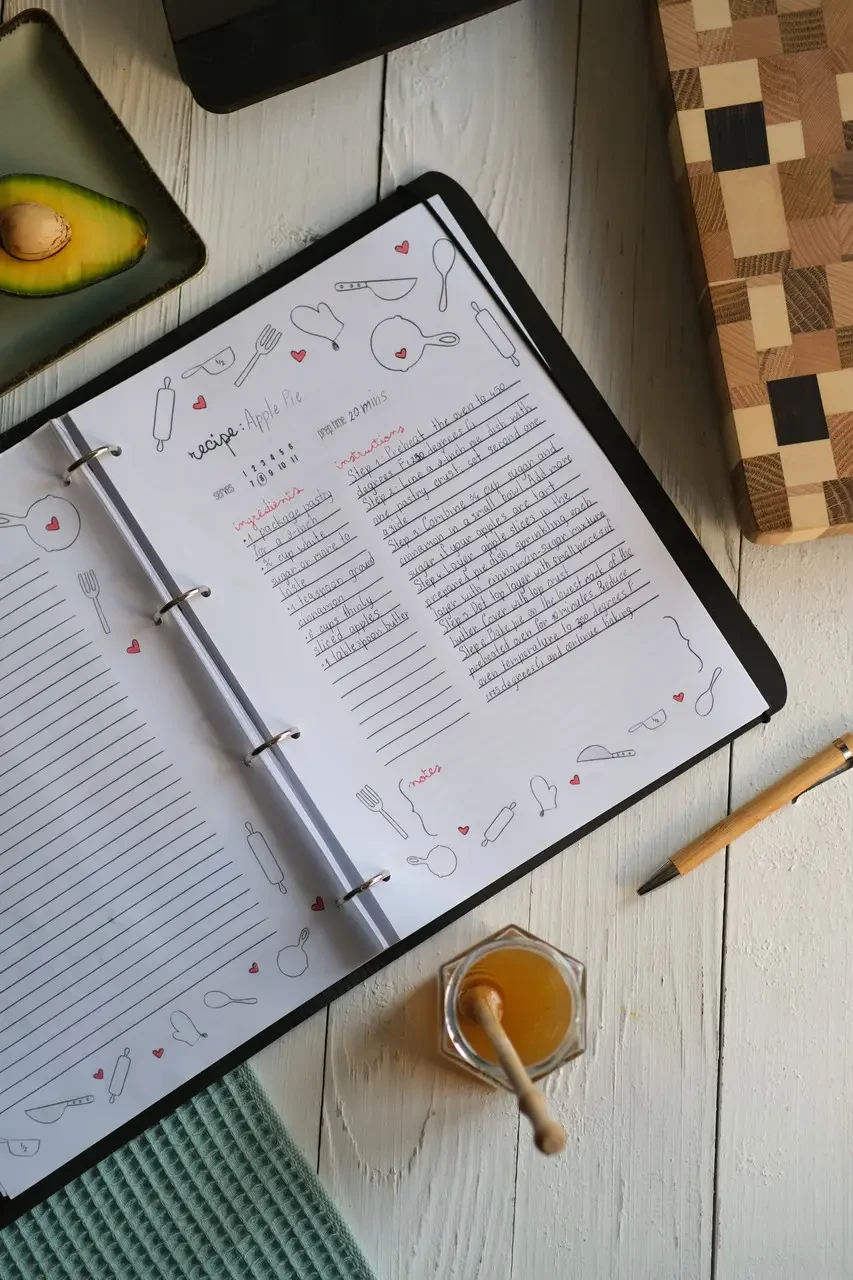 recipe: Apple Pie
prep time: 20 mins
serves
1 2 3 4 5 6
7 8 9 10 11
ingredients
• 1 package pastry
for a 9-inch
¾ cup white
sugar or more to
taste
• 1 teaspoon ground
cinnamon
• 6 cups thinly
sliced apples
• 1 tablespoon butter
instructions
Step 1: Preheat the oven to 450
degrees F (230 degrees C)
Step 2: Line a 9-inch pie dish with
one pastry crust: set second one
aside
Step 3: Combine ¾ cup sugar and
cinnamon in a small bowl. Add more
sugar if your apples are tart
Step 4: Layer apple slices in the
prepared pie dish, sprinkling each
layer with cinnamon-sugar mixture
Step 5: Dot top layer with small pieces of
butter. Cover with top crust
Step 6: Bake pie on the lowest rack of the
preheated oven for 10 minutes. Reduce
oven temperature to 350 degrees F
(175 degrees C) and continue baking.
notes
½
½